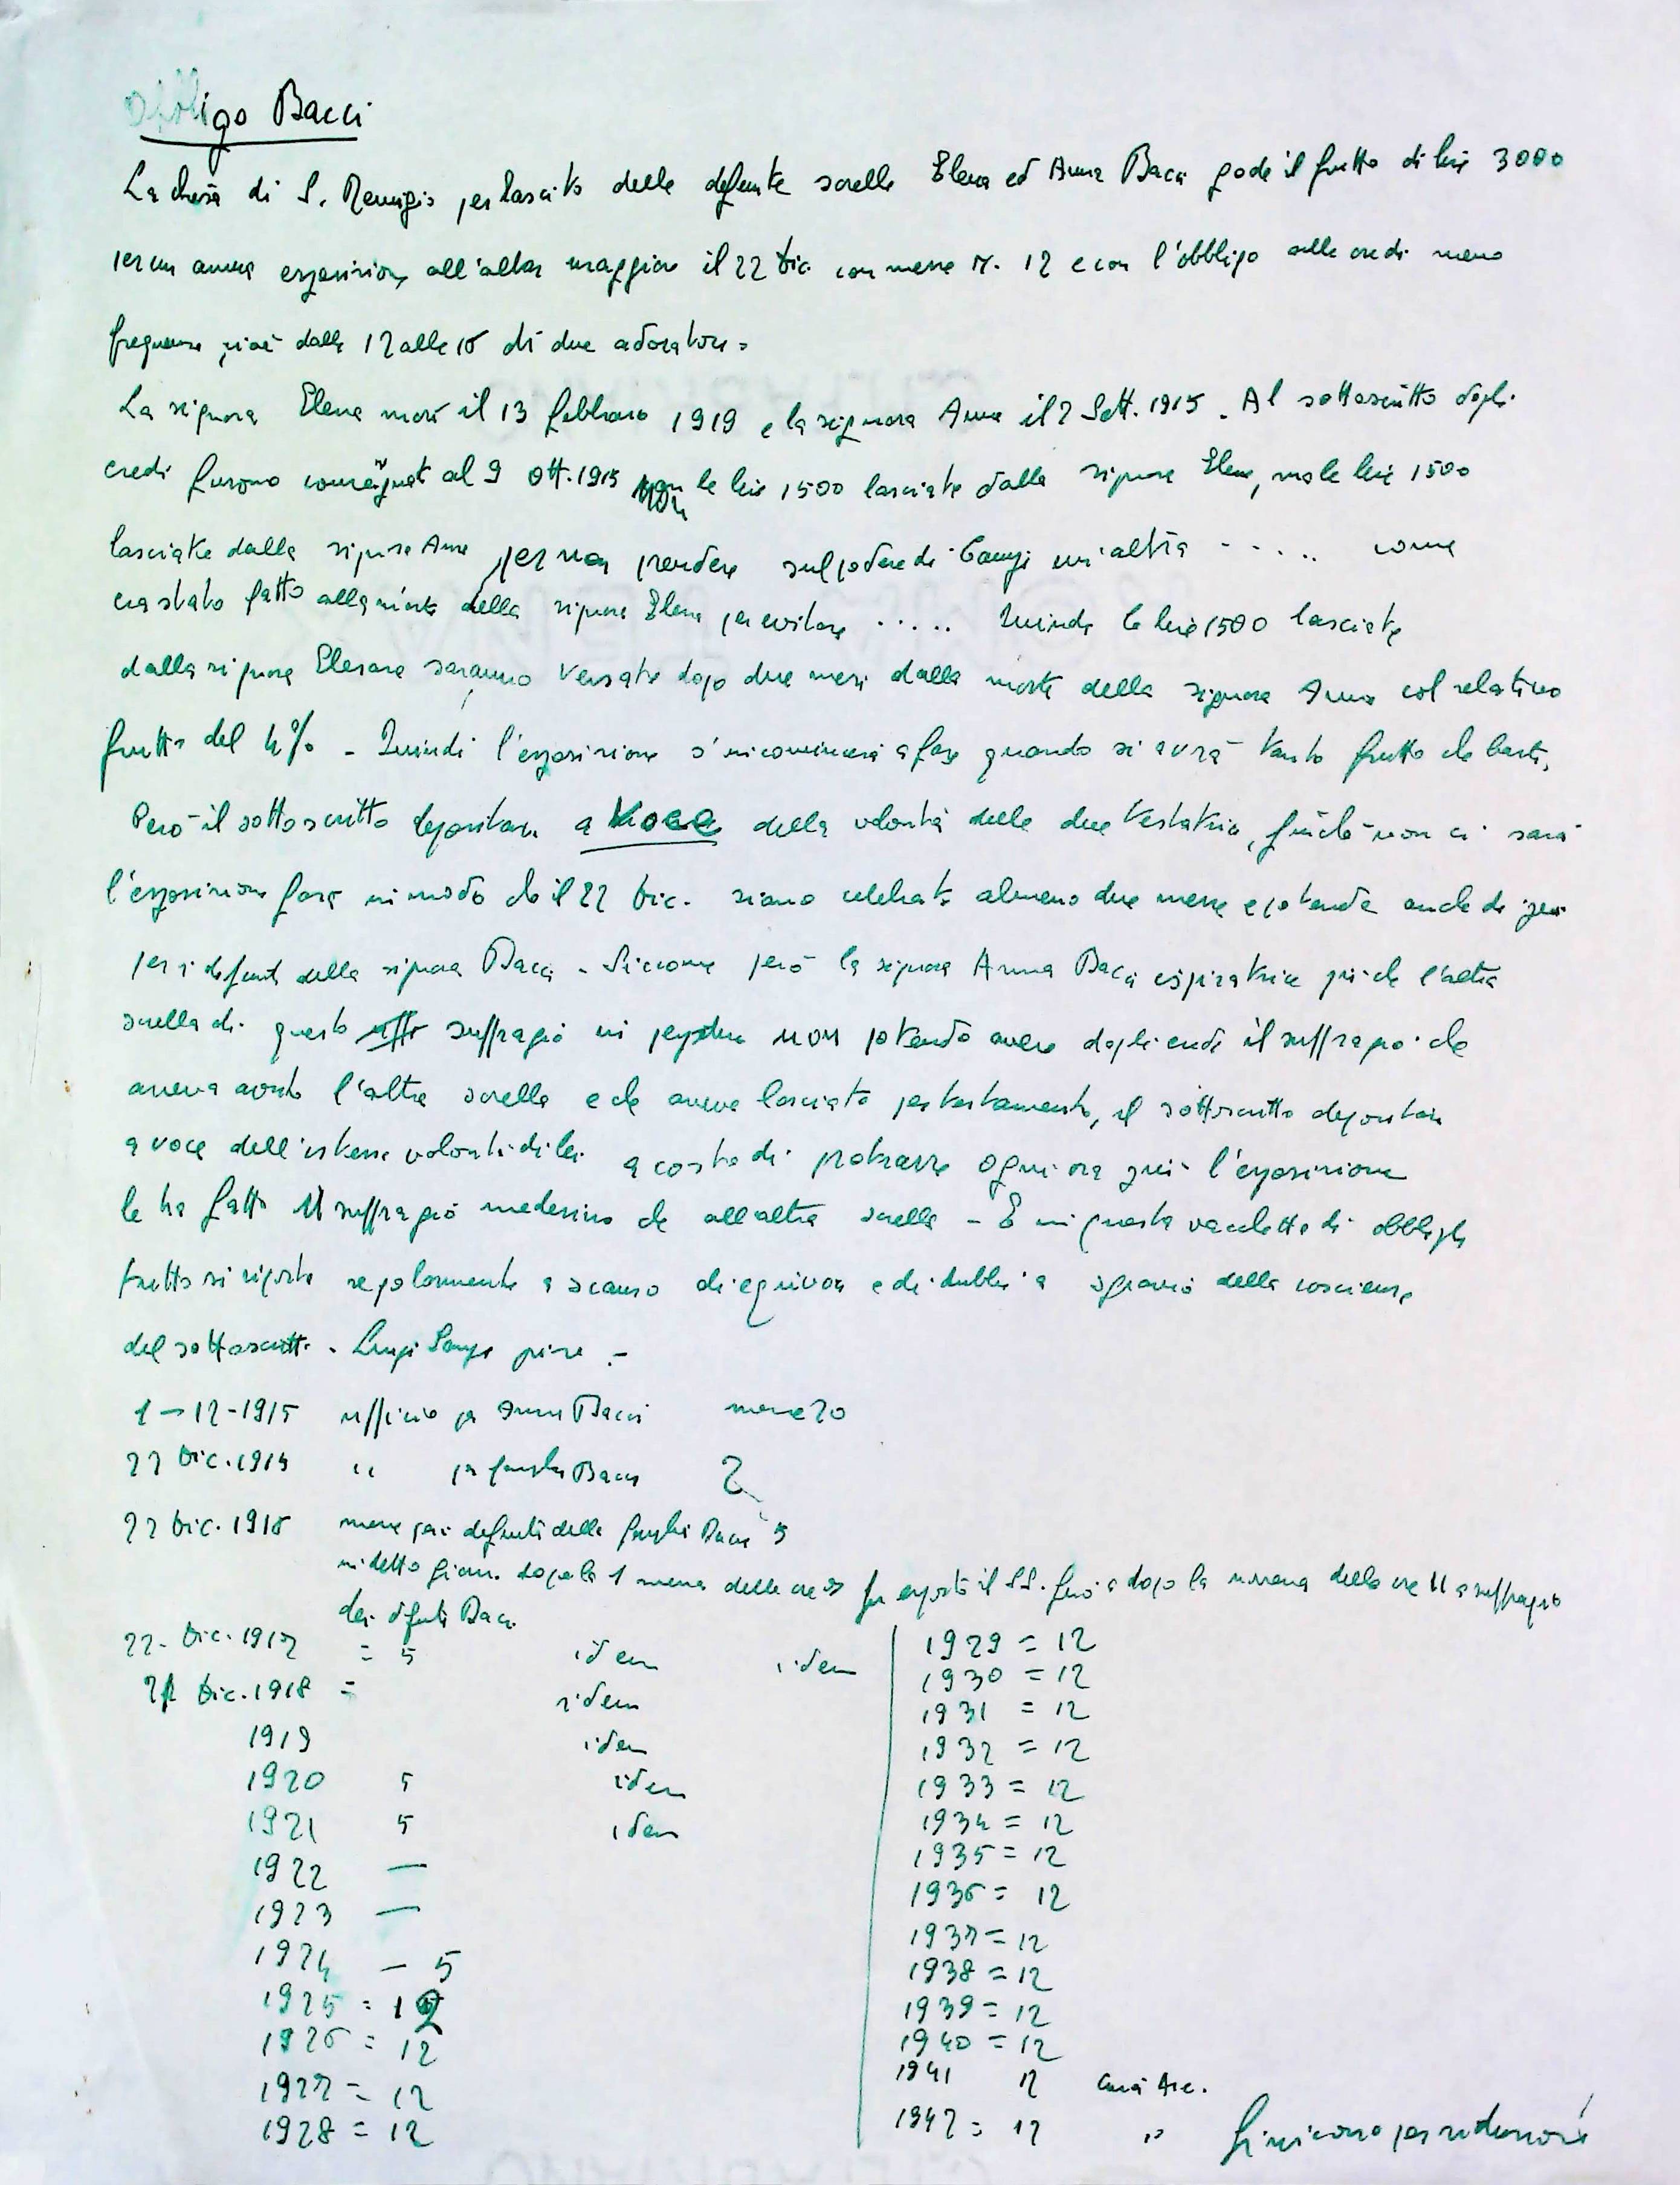 Obbligo Bacci
La chiesa di S. Remigio per lascito delle defunte sorelle Elena ed Anna Bacci gode il frutto di lire 3000
per un annua esposizione all'altar maggiore il 22 Dic. con messe N. 12 e con l'obbligo alle ore di meno
frequenza, cioè dalle 12 alle 16 di due adoratori =
La signora Elena morì il 13 febbraio 1919 e la signora Anna il 2 Sett. 1915. Al sottoscritto dagli
eredi furono consegnate al 9 Ott. 1915 non le lire 1500 lasciate dalla signora Elena, ma le lire 1500
lasciate dalla signora Anna per non prendere sul podere di Campi un'altra ..... come
era stato fatto alla morte della signora Elena per evitare ..... Quindi le lire 1500 lasciate
dalla signora Elena saranno versate dopo due mesi dalla morte della signora Anna col relativo
frutto del 4% - Quindi l'esposizione s'incomincerà a fare quando si avrà tanto frutto che basti.
Però il sottoscritto depositario a voce della volontà delle due testatrici, finché non ci sarà
l'esposizione farà in modo che il 22 Dic. siano celebrate almeno due messe e potendo anche di più
per i defunti della signora Bacci - Siccome però la signora Anna Bacci ispiratrice più che l'altra
sorella di questo suffragio in perpetuo non potendo avere dagli eredi il suffragio che
aveva avuto l'altra sorella e che aveva lasciato per testamento, il sottoscritto depositario
a voce dell'istessa volontà di lei a costo di protrarre ogni ora più l'esposizione
le ha fatto il suffragio medesimo che all'altra sorella - E in questa vacchetta di obblighi
tutto si riporta regolarmente a scanso di equivoci e di dubbi a sgravio della coscienza
del sottoscritto. Luigi priore .-
1-12-1915 ufficio per Anna Bacci messe 20
22 Dic. 1915 " per famiglia Bacci 2
22 Dic. 1916 messe per i defunti della famiglia Bacci 5
in detto giorno dopo la 1 messa delle ore 7 fu esposto il SS. fino a dopo la messa delle ore 11 a suffragio
dei defunti Bacci
22. Dic. 1917 = 5 idem idem
22 Dic. 1918 = idem
1919 idem
1920 5 idem
1921 5 idem
1922 —
1923 —
1924 — 5
1925 = 12
1926 = 12
1927 = 12
1928 = 12
1929 = 12
1930 = 12
1931 = 12
1932 = 12
1933 = 12
1934 = 12
1935 = 12
1936 = 12
1937 = 12
1938 = 12
1939 = 12
1940 = 12
1941 12 Curia Arc.
1942 = 12 " finiscono per riduzione